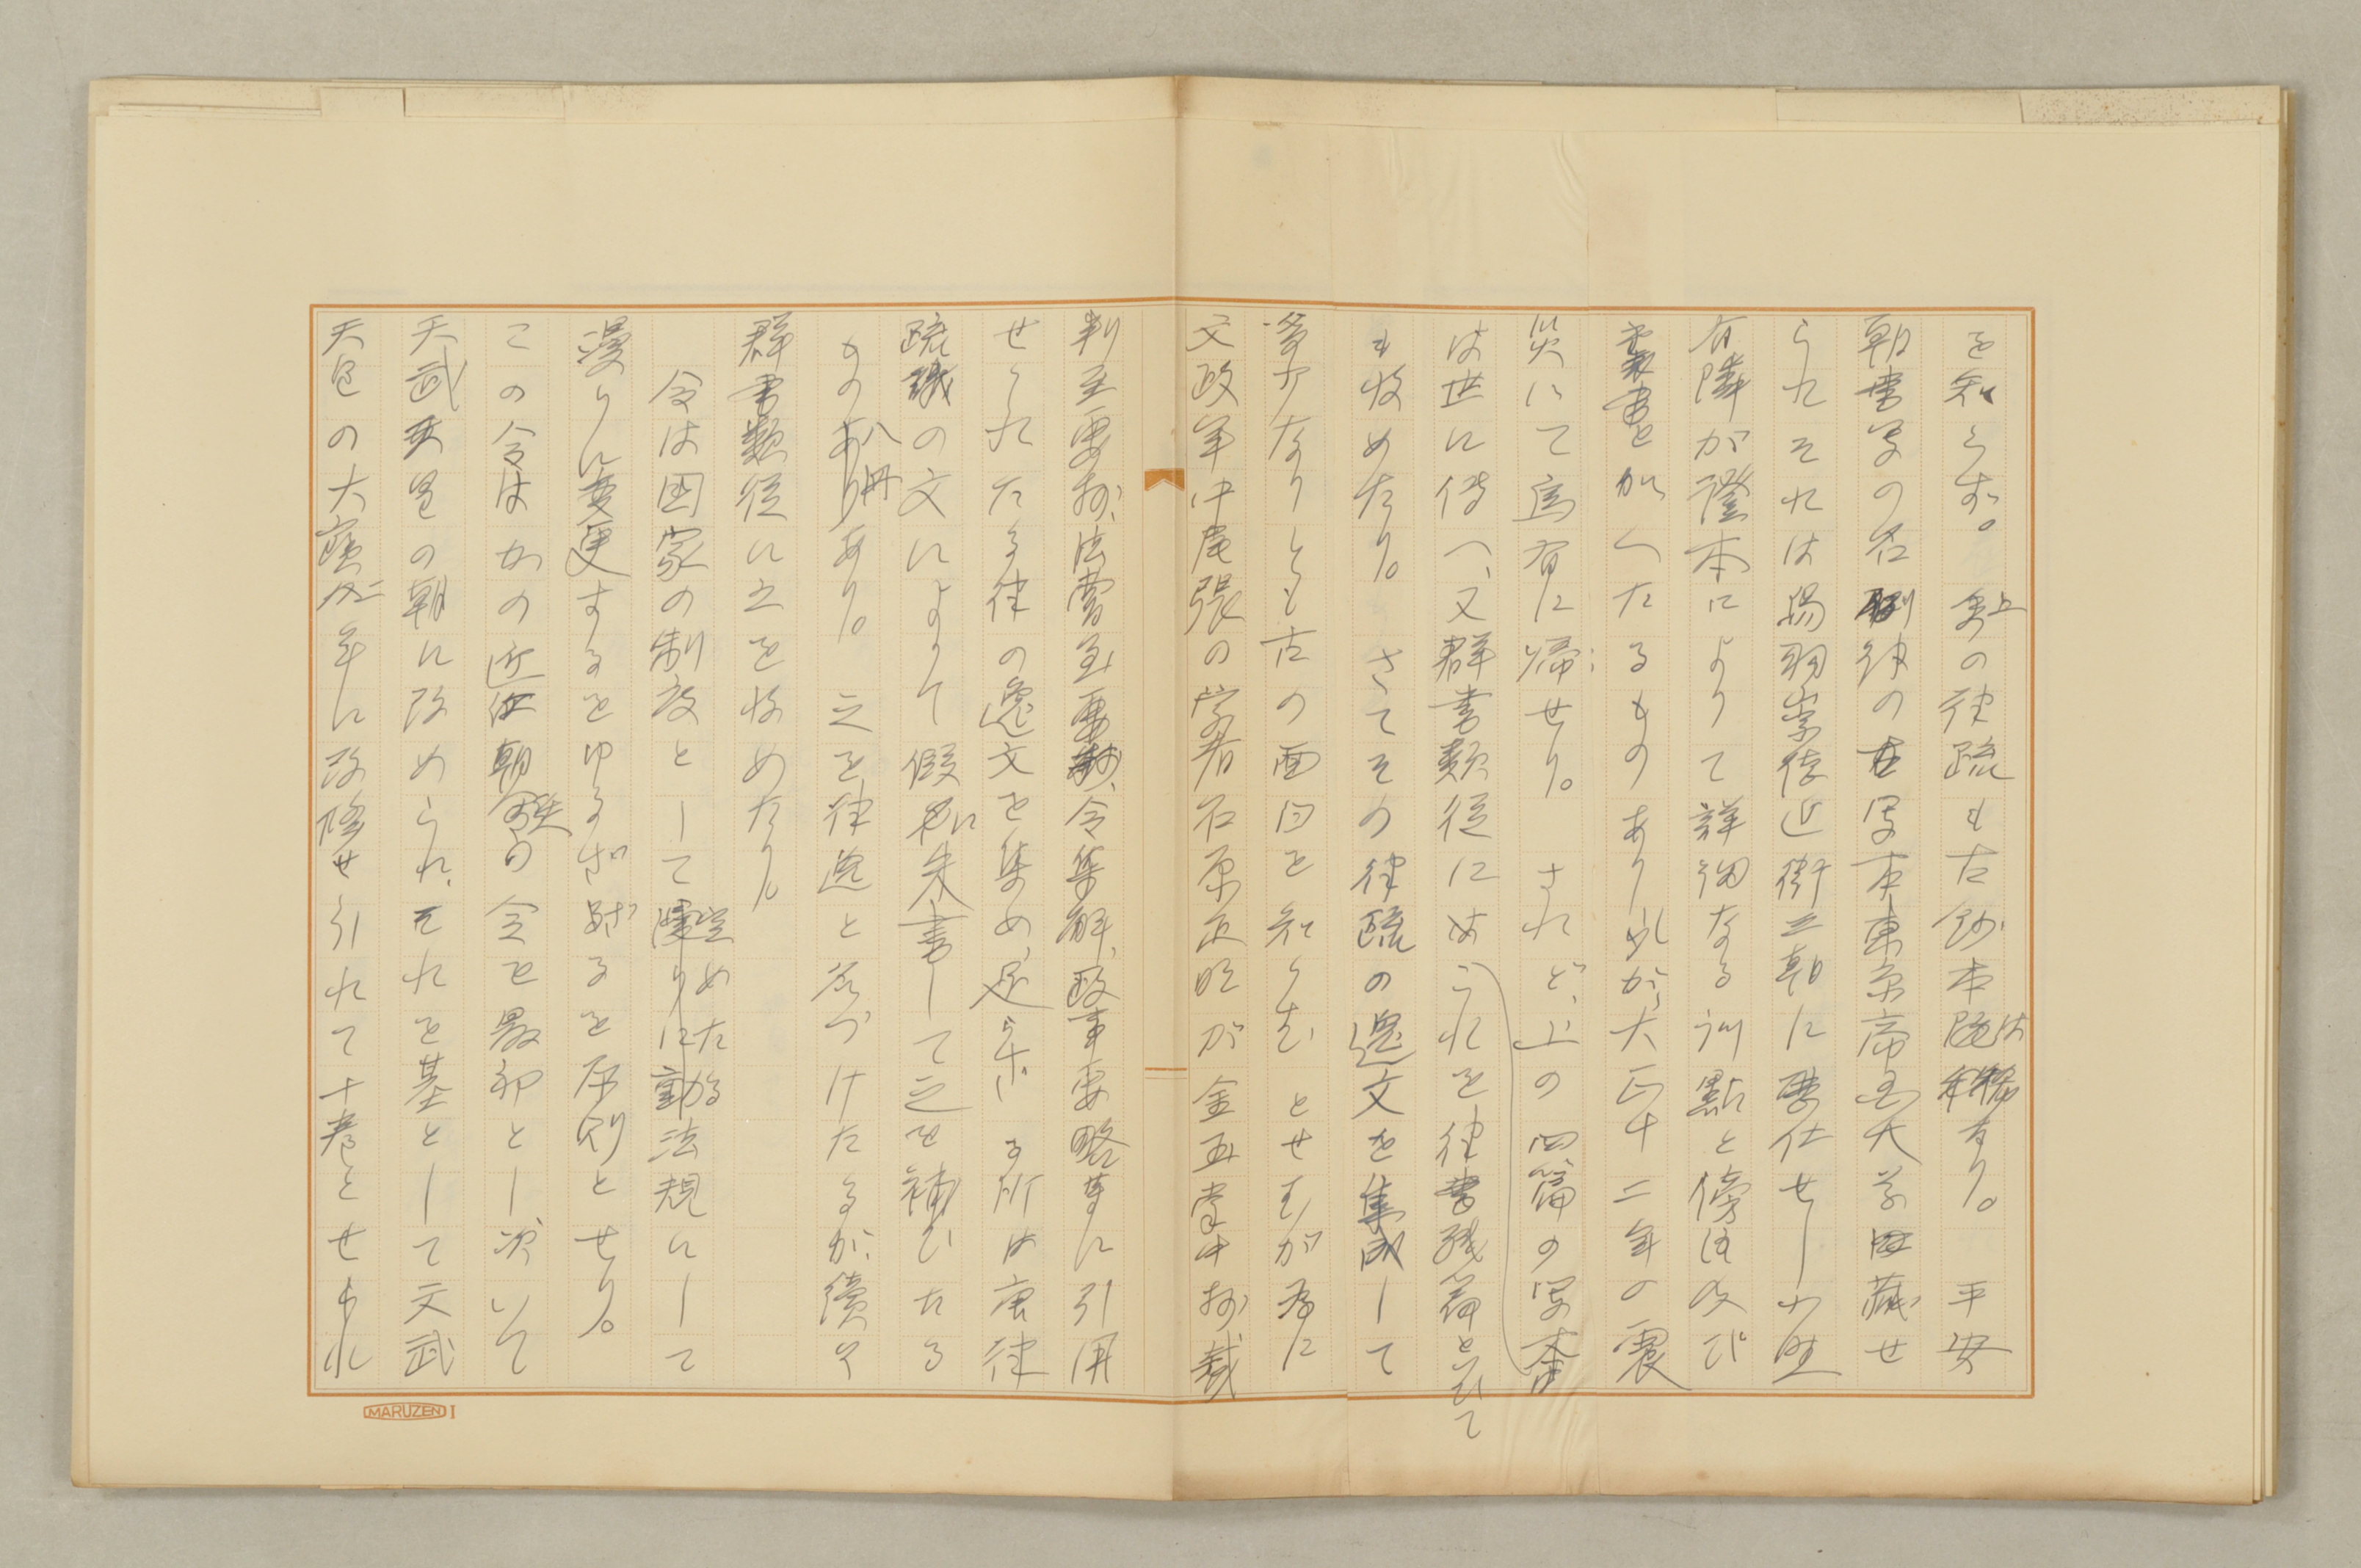 を知らず。上の律疏も古鈔本は稀なり。平安
朝書写の名例律の古写本東京帝国大学に蔵せ
られそれは鳥羽崇徳近衛三朝に歴仕せし小野
有隣が證本によりて詳細なる訓點と傍注及び
裏書とを加へたるものありしが大正十二年の震
災にて烏有に帰せり。されど、上の四篇の写本
は世に傳へ、又群書類従にはこれを律書残篇といひて
も收めたり。さてその律疏の逸文を集成して
寥々なりとも古の面目を知らむとせむが為に
文政年中尾張の学者石原正明が金玉掌中抄裁
判至要抄、法曹至要抄、令集解、政事要略等に引用
せられたる律の逸文を集め、足らざる所は唐律
疏議の文によりて假に朱書して之を補ひたる
もの八冊あり。之を律逸と名づけたるが、續々
群書類従に之を收めたり。
令は国家の制度として定めたる法規にして
漫りに変更するをゆるさざるを原則とせり。
この令はかの近江朝の令を最初とし、次いで
天武天皇の朝に改められ、それを基として文武
天皇の大寳元年に改修せられて十一巻とせられ
MARUZEN I